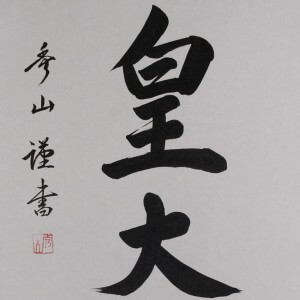 皇大
秀山謹書